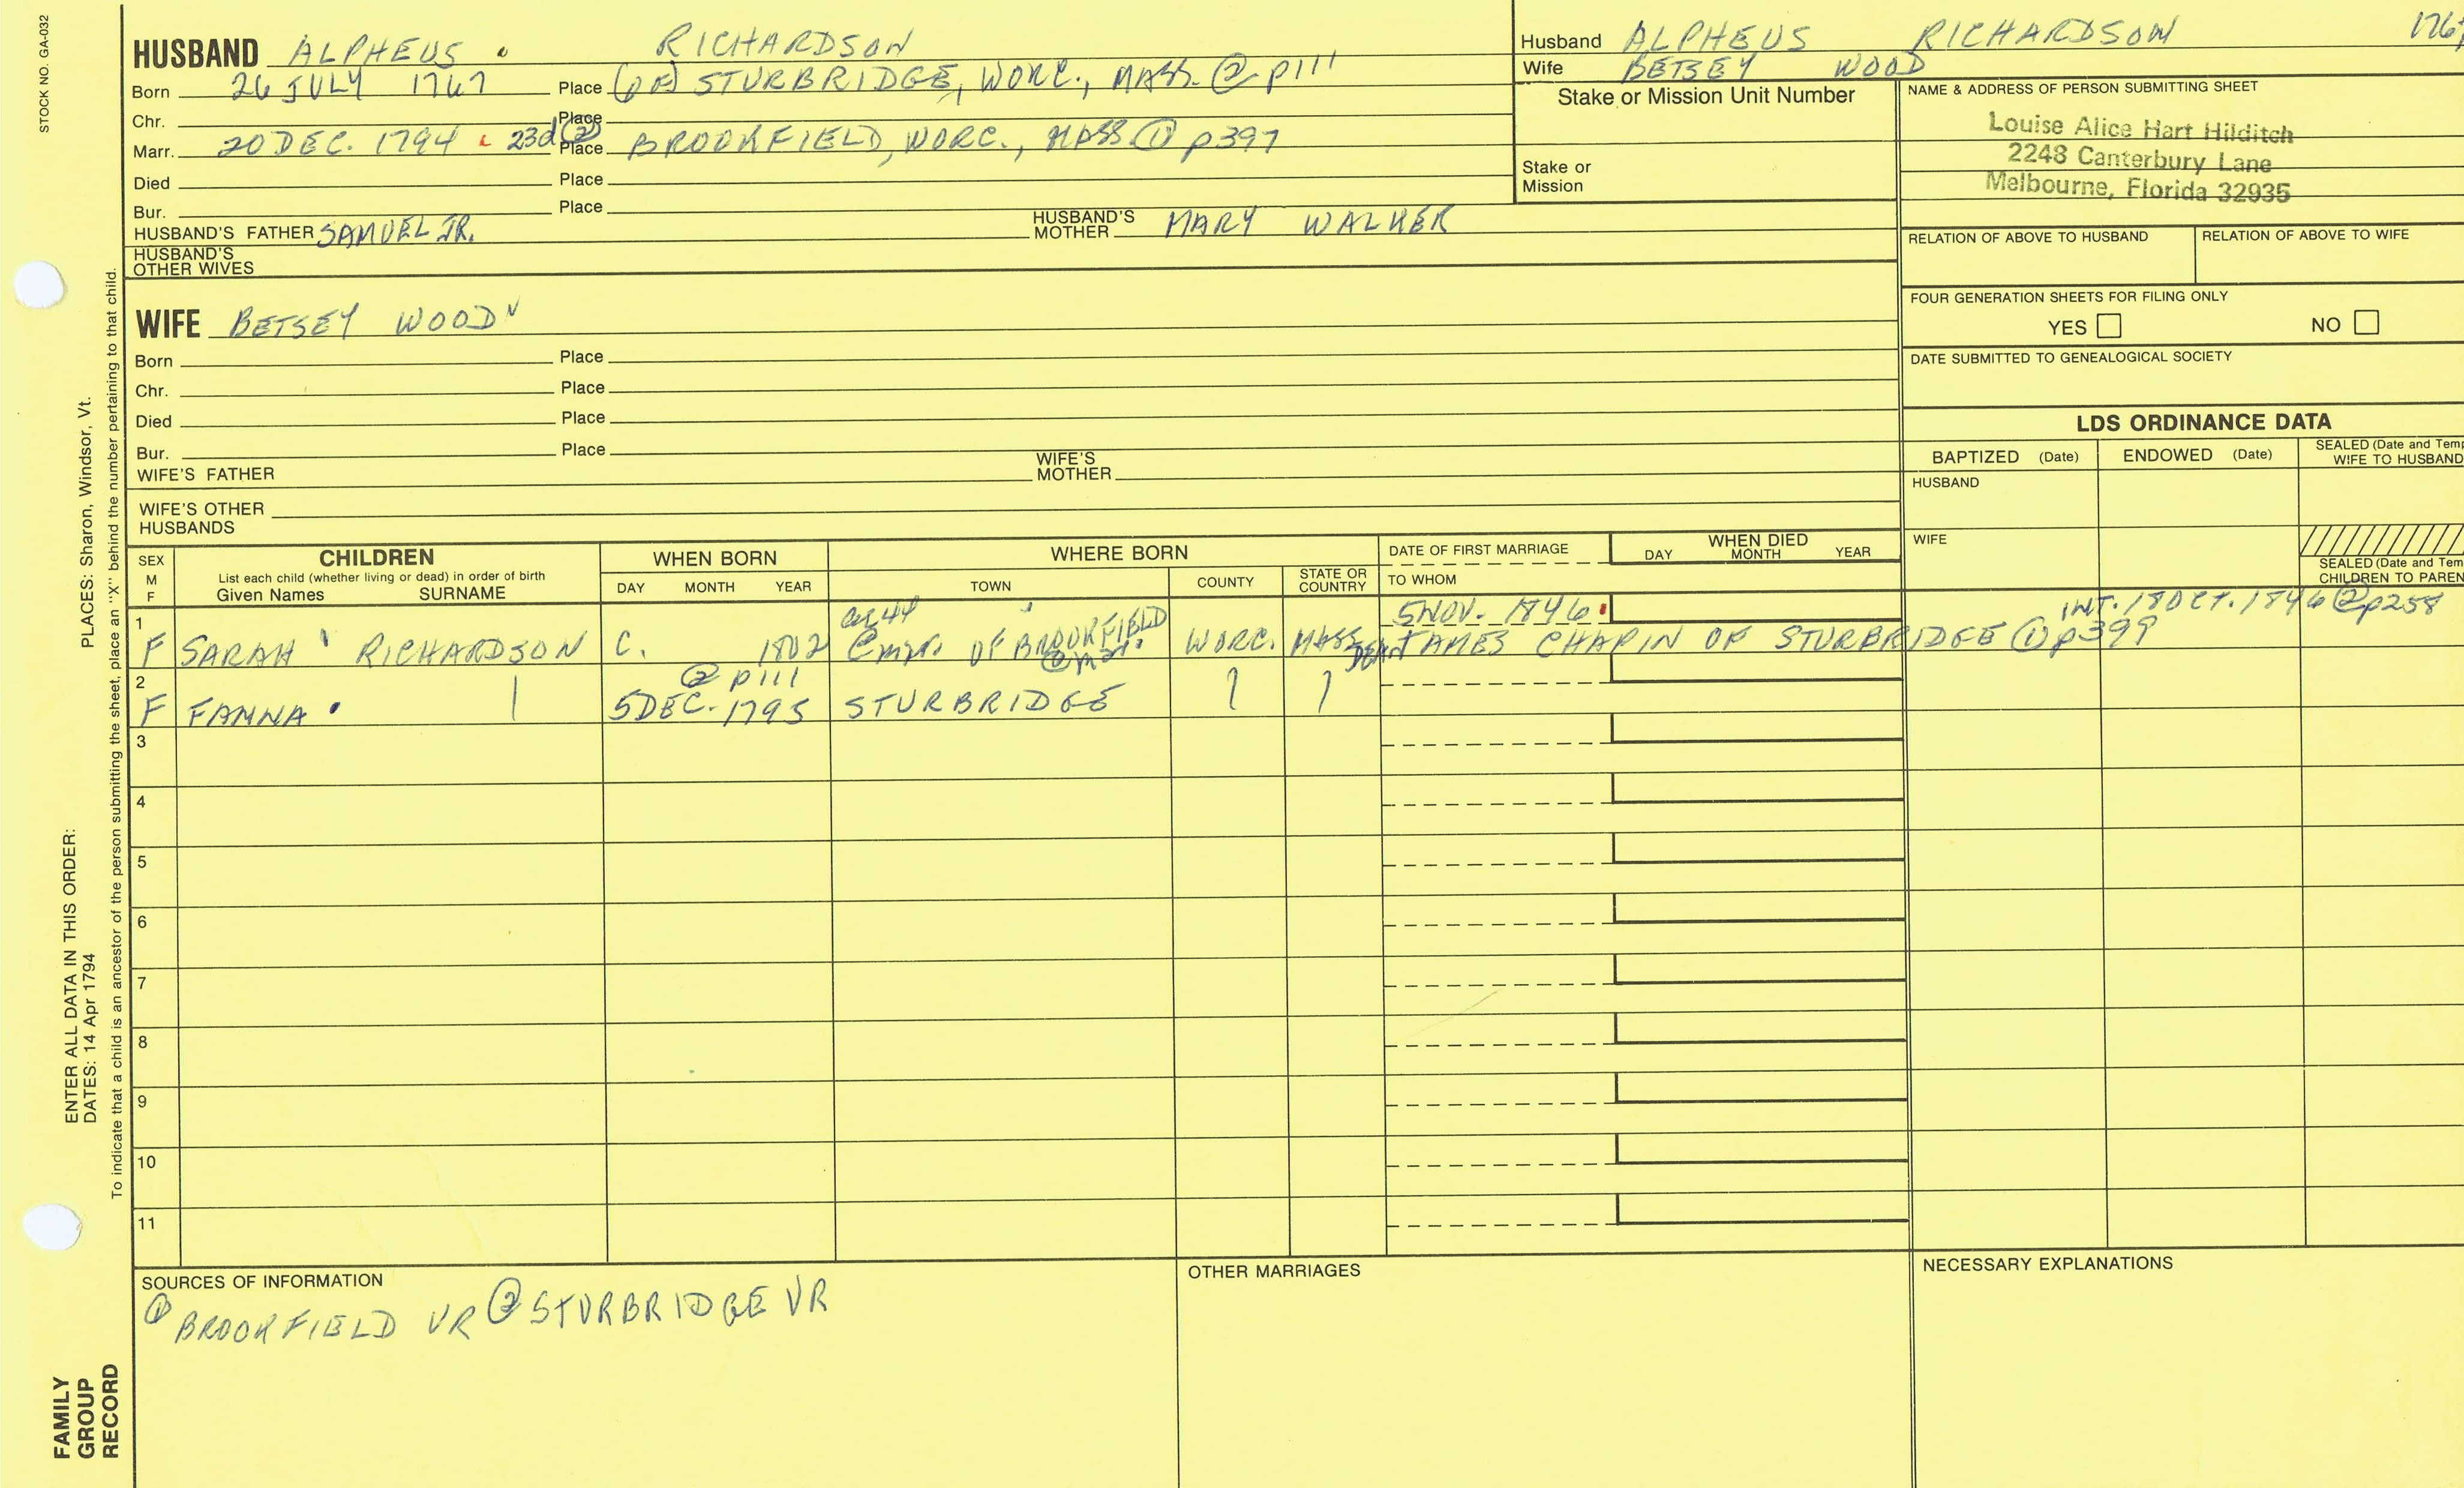 STOCK NO. GA-032
HUSBAND ALPHEUS RICHARDSON
Born 26 JULY 1767 Place (OF) STURBRIDGE, WORC., MASS. ② p111
Chr. Place
Marr. 20 DEC. 1794 23d ② Place BROOKFIELD, WORC., MASS ① p397
Died Place
Bur. Place
HUSBAND'S FATHER SAMUEL JR. HUSBAND'S MOTHER MARY WALKER
HUSBAND'S OTHER WIVES
Husband ALPHEUS RICHARDSON
Wife BETSEY WOOD
Stake or Mission Unit Number
Stake or
Mission
NAME & ADDRESS OF PERSON SUBMITTING SHEET
Louise Alice Hart Hilditch
2248 Canterbury Lane
Melbourne, Florida 32935
RELATION OF ABOVE TO HUSBAND RELATION OF ABOVE TO WIFE
FOUR GENERATION SHEETS FOR FILING ONLY
YES NO
DATE SUBMITTED TO GENEALOGICAL SOCIETY
WIFE BETSEY WOOD
Born Place
Chr. Place
Died Place
Bur. Place
WIFE'S FATHER WIFE'S MOTHER
WIFE'S OTHER
HUSBANDS
LDS ORDINANCE DATA
BAPTIZED (Date) ENDOWED (Date) SEALED (Date and Tem
WIFE TO HUSBAND
HUSBAND
WIFE
SEALED (Date and Tem
CHILDREN TO PAREN
SEX
M
F
CHILDREN
List each child (whether living or dead) in order of birth
Given Names SURNAME
WHEN BORN
DAY MONTH YEAR
WHERE BORN
TOWN COUNTY STATE OR COUNTRY
DATE OF FIRST MARRIAGE
TO WHOM
WHEN DIED
DAY MONTH YEAR
1 5 NOV. 1846 INT. 18 OCT. 1846 ② p258
F SARAH RICHARDSON C. 1802 OF BROOKFIELD WORC. MASS JAMES CHAPIN OF STURBRIDGE ① p399
2 ② p111
F FANNA 5 DEC. 1795 STURBRIDGE
3
4
5
6
7
8
9
10
11
SOURCES OF INFORMATION
① BROOKFIELD VR ② STURBRIDGE VR
OTHER MARRIAGES
NECESSARY EXPLANATIONS
FAMILY
GROUP
RECORD
ENTER ALL DATA IN THIS ORDER:
DATES: 14 Apr 1794 PLACES: Sharon, Windsor, Vt.
To indicate that a child is an ancestor of the person submitting the sheet, place an "X" behind the number pertaining to that child.